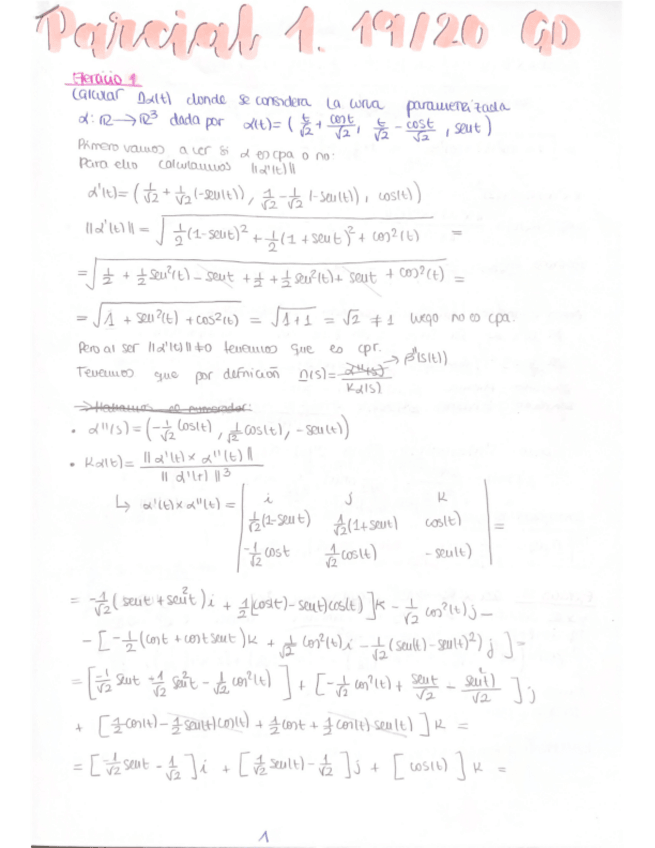 Parcial 1. 19/20 GD
Ejercicio 1
Calcular nα(t) donde se considera la curva parametrizada
α: ℝ → ℝ³ dada por α(t) = ( t/√2 + cost/√2, t/√2 - cost/√2, sent )
Primero vamos a ver si α es cpa o no:
Para ello calculamos ||α'(t)||
α'(t) = ( 1/√2 + 1/√2 (-sen(t)), 1/√2 - 1/√2 (-sen(t)), cos(t) )
||α'(t)|| = √( 1/2 (1-sent)² + 1/2 (1+sent)² + cos²(t) ) =
= √( 1/2 + 1/2 sen²(t) - sent + 1/2 + 1/2 sen²(t) + sent + cos²(t) ) =
= √( 1 + sen²(t) + cos²(t) ) = √(1+1) = √2 ≠ 1 luego no es cpa.
Pero al ser ||α'(t)|| ≠ 0 tenemos que es cpr.
Tenemos que por definición n(s) = α''(s)/Kα(s) → β''(s(t))
→ Hallamos el numerador:
• α''(s) = ( -1/√2 cos(t), 1/√2 cos(t), -sen(t) )
• Kα(t) = ||α'(t) × α''(t)|| / ||α'(t)||³
↳ α'(t) × α''(t) = | i j k |
| 1/√2 (1-sent) 1/√2 (1+sent) cos(t) | =
| -1/√2 cost 1/√2 cos(t) -sen(t) |
= -1/√2 ( sent + sen²t ) i + 1/2 [cos(t) - sen(t)cos(t)] k - 1/√2 cos²(t) j -
- [ -1/2 (cost + cost sent) k + 1/√2 cos²(t) i - 1/√2 (sen(t) - sen(t)²) j ] =
= [ -1/√2 sent - 1/√2 sen²t - 1/√2 cos²(t) ] + [ -1/√2 cos²(t) + sent/√2 - sen²(t)/√2 ] j
+ [ 1/2 cos(t) - 1/2 sen(t)cos(t) + 1/2 cost + 1/2 cos(t) sen(t) ] k =
= [ -1/√2 sent - 1/√2 ] i + [ 1/√2 sen(t) - 1/√2 ] j + [ cos(t) ] k =
1